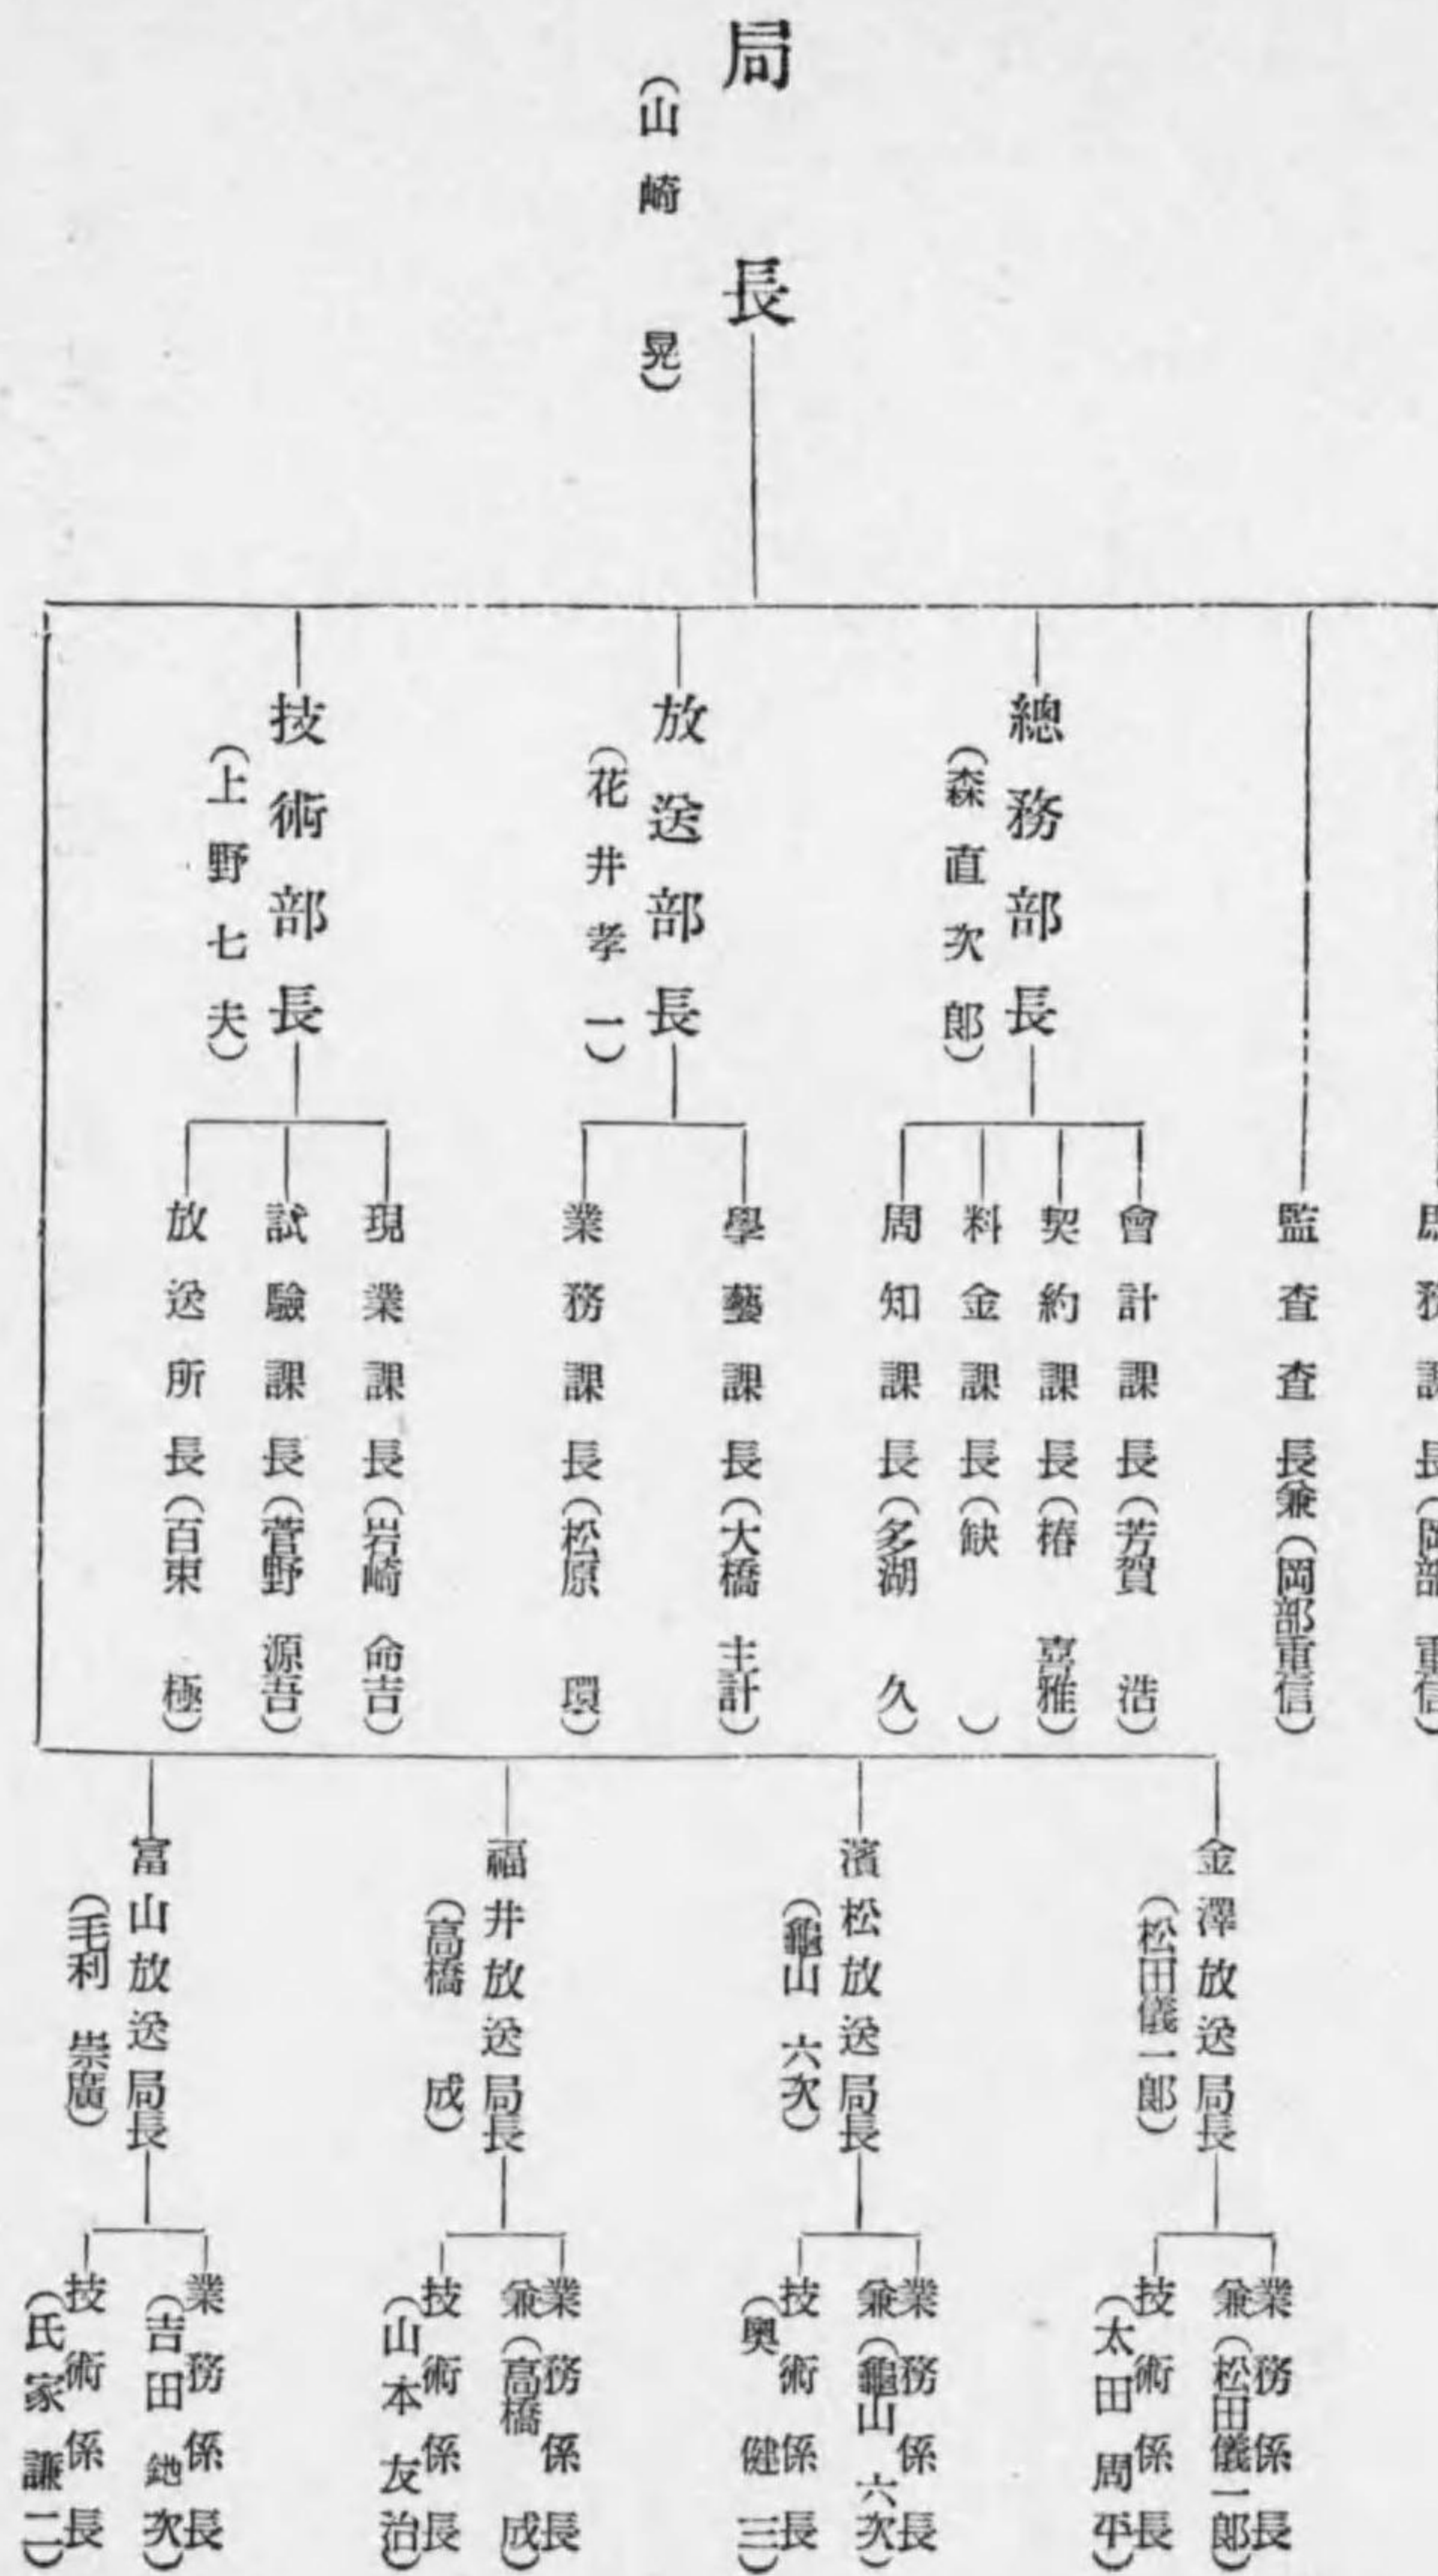 局長
（山崎晃）
務課長（岡部重信）
監査査長兼（岡部重信）
總務部長
（森直次郎）
會計課長（芳賀浩）
契約課長（椿喜雅）
料金課長（缺）
周知課長（多湖久）
放送部長
（花井孝一）
學藝課長（大橋主計）
業務課長（松原環）
技術部長
（上野七夫）
現業課長（岩崎命吉）
試驗課長（菅野源吾）
放送所長（百束極）
金澤放送局長
（松田儀一郎）
業務係長
兼（松田儀一郎）
技術係長
（太田周平）
濱松放送局長
（龜山六次）
業務係長
兼（龜山六次）
技術係長
（奧健三）
福井放送局長
（高橋成）
業務係長
兼（高橋成）
技術係長
（山本友治）
富山放送局長
（毛利崇廣）
業務係長
（吉田鉚次）
技術係長
（氏家謙二）